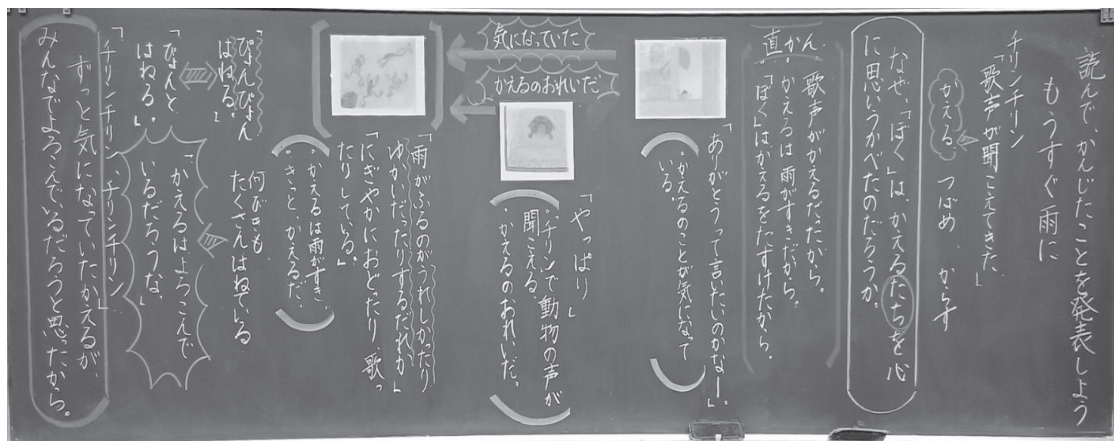 読んで、かんじたことを発表しよう
もうすぐ雨に
チリンチリン
「歌声が聞こえてきた。」
かえる
つばめ、からす
なぜ、「ぼく」は、かえるたちを心
に思いうかべたのだろうか。
直かん
・歌声がかえるだったから。
・かえるは雨がすきだから。
・「ぼく」はかえるをたすけたから。
「ありがとうって言いたいのかなー。」
・かえるのことが気になって
いる。
気になっていた
かえるのおれいだ
「やっぱり」
・チリンで動物の声が
聞こえる。
・かえるのおれいだ。
「雨がふるのがうれしかったり
ゆかいだったりするだれか」
「にぎやかにおどったり歌っ
たりしている。」
・かえるは雨がすき。
・きっと、かえるだ。
「ぴょんぴょん
はねる。」
「ぴょんと
はねる。」
何びきも、
たくさんはねている
「かえるはよろこんで
いるだろうな。」
「チリンチリン、チリンチリン」
ずっと気になっていたかえるが、
みんなでよろこんでいるだろうと思ったから。